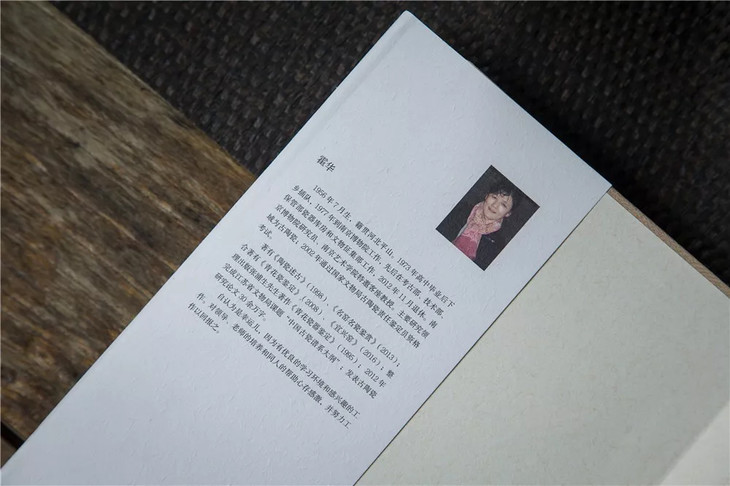 霍华
1956年7月生，籍贯河北平山；1973年高中毕业后下
乡插队，1977年到南京博物院工作，先后在考古部、技术部、
保管部瓷器库房和文物征集部工作，2012年11月退休。南
京博物院研究员、南京艺术学院特邀客座教授，主要研究领
域为古陶瓷；2002年通过国家文物局古陶瓷责任鉴定员资格
考试。
著有《陶瓷述古》（1998）、《名窑名瓷鉴赏》（2013）；
合著有《青花瓷鉴定》（2008）、《宜兴窑》（2016）；整
理出版张浦生先生著作《青花瓷器鉴定》（1995）；2012年
完成江苏省文物局课题“中国古瓷谱系大纲”；发表古陶瓷
研究论文30余万字。
自认为是幸运儿，因为有优良的学习环境和感兴趣的工
作，对领导、老师的培养和同人的帮助心存感激，并努力工
作以回报之。